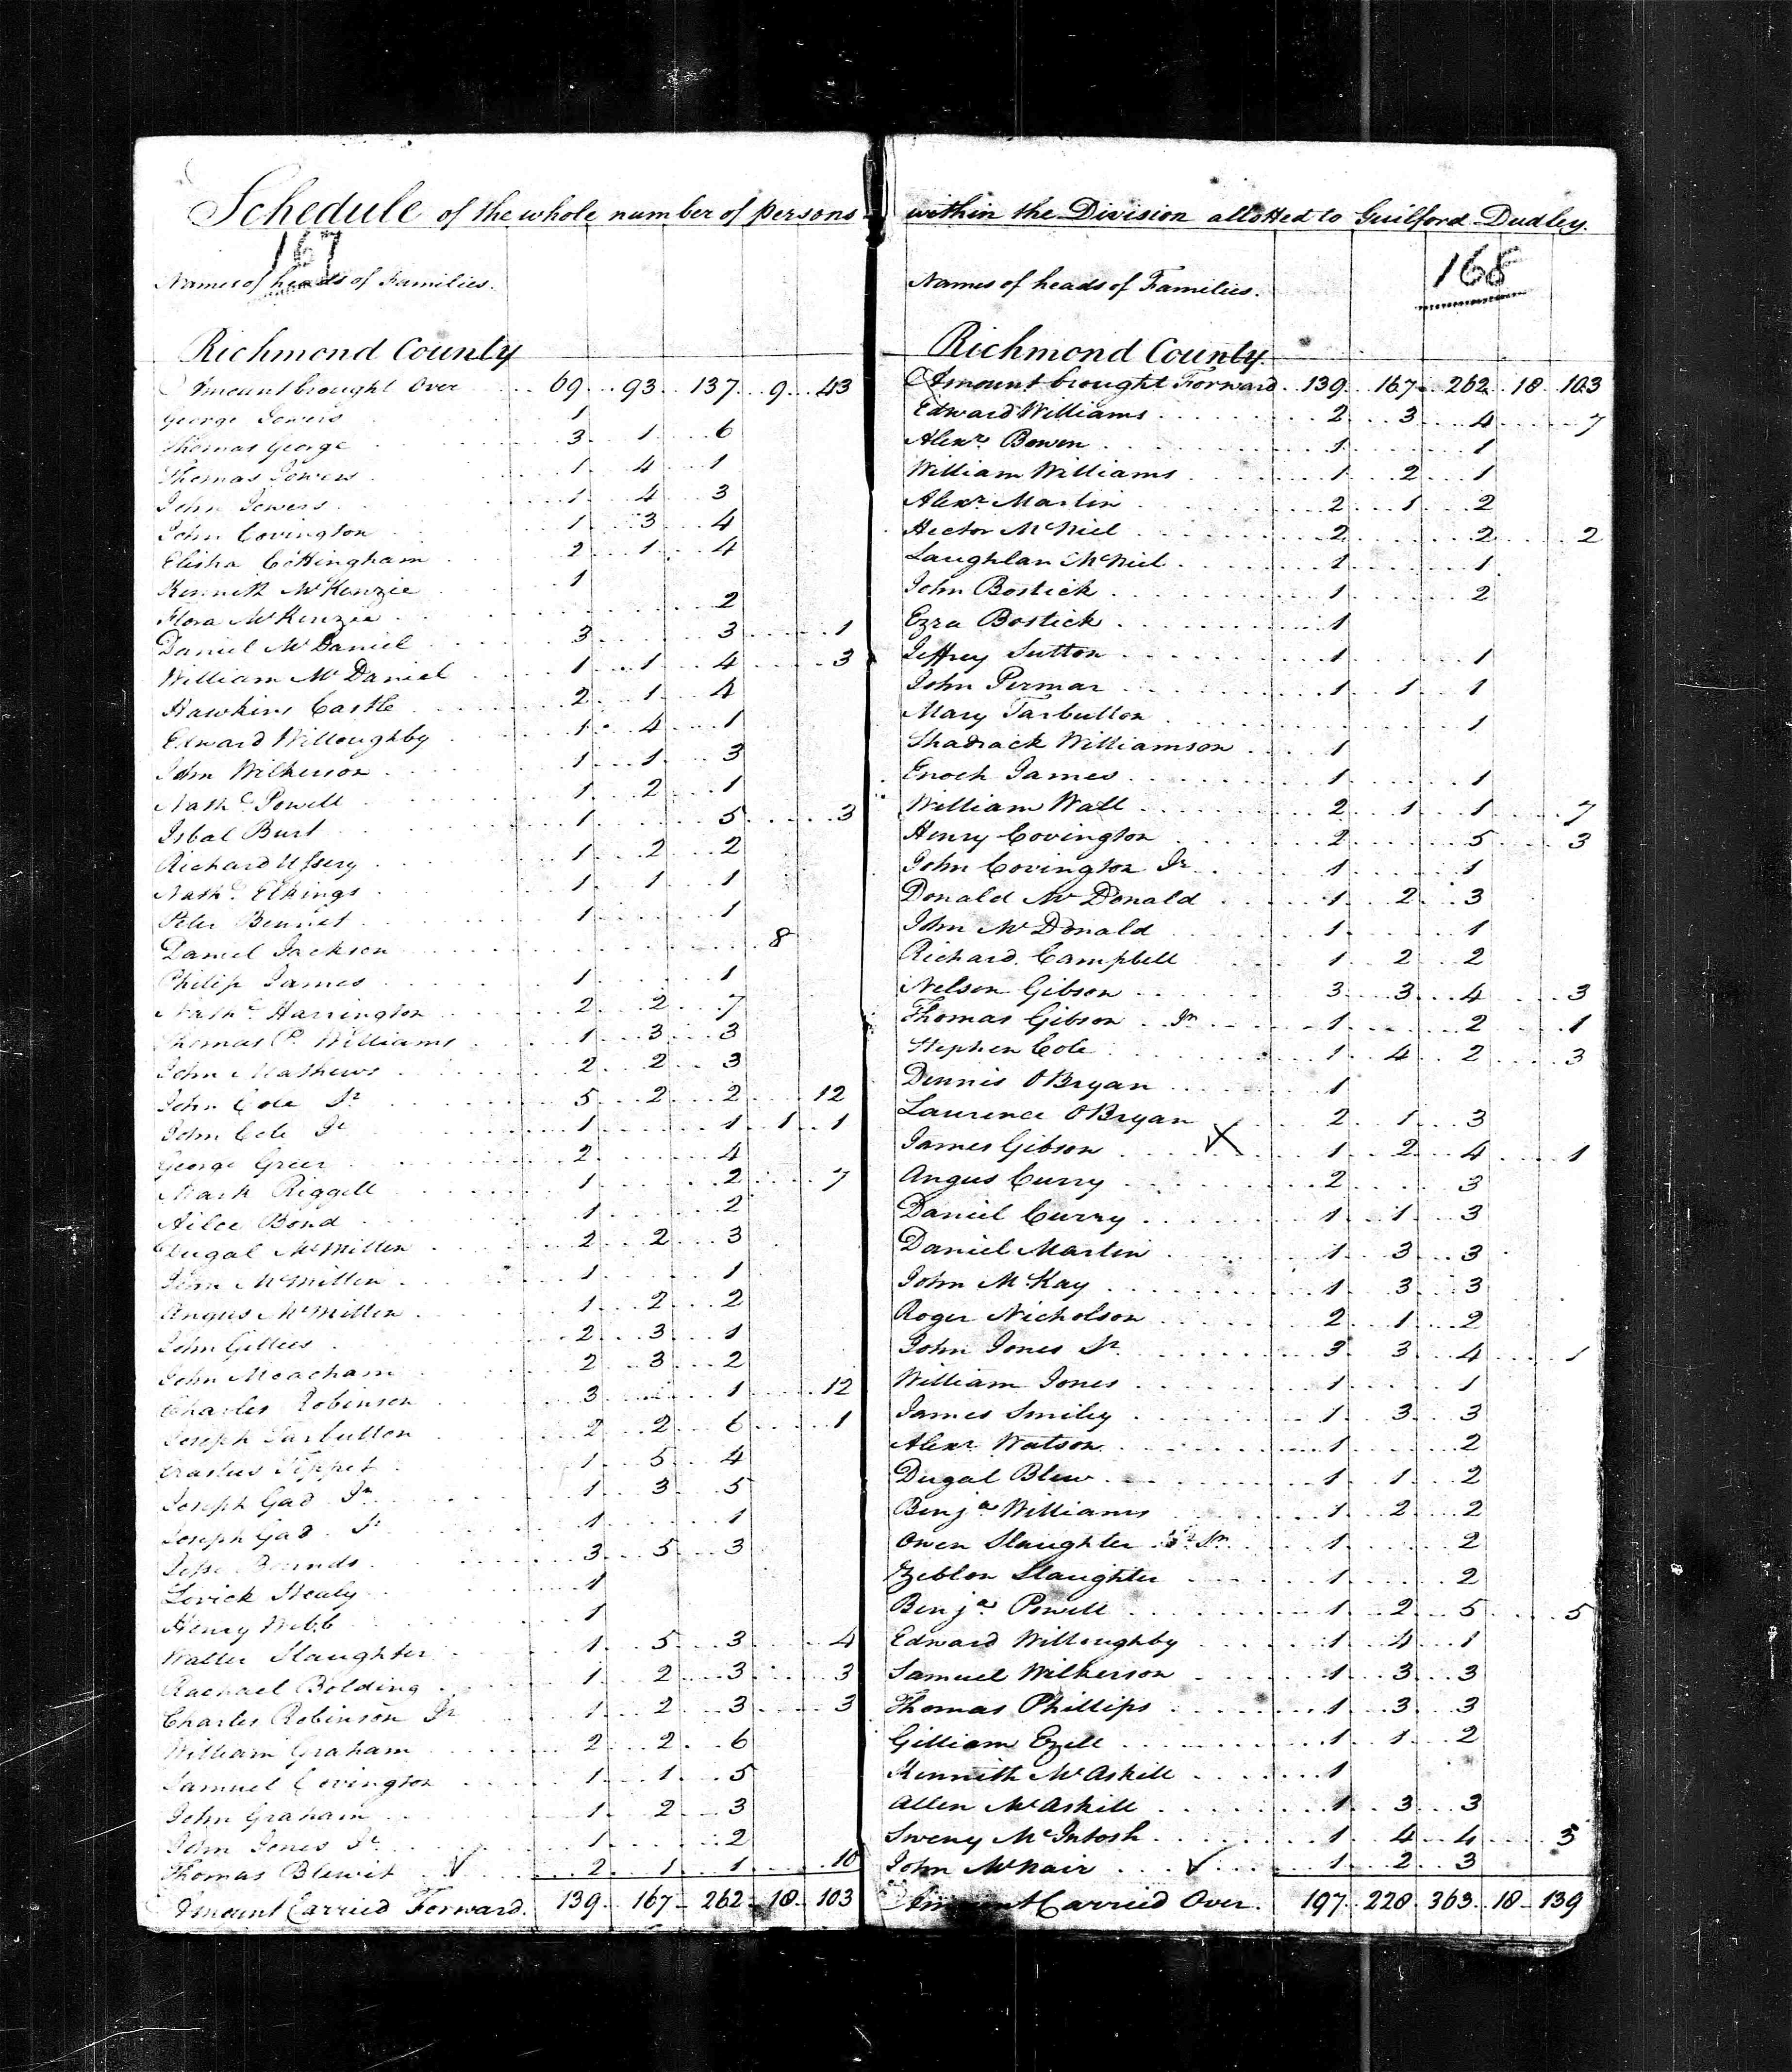 Schedule of the whole number of persons
167
Names of heads of Families.
Richmond County
Amount brought Over 69 93 137 9 43
George Sowers 1
Thomas George 3 1 6
Thomas Sowers 1 4 1
John Sowers 1 4 3
John Covington 1 3 4
Elisha Cottingham 2 1 4
Kenneth McKenzie 1
Flora McKenzie 2
Daniel McDaniel 3 3 1
William McDaniel 1 1 4 3
Hawkins Castle 2 1 4
Edward Willoughby 1 4 1
John Wilkerson 1 1 3
Nathl Powell 1 2 1
Isbal Burt 1 5 3
Richard Ussery 1 2 2
Nathl Elkings 1 1 1
Peter Bennet 1 1
Daniel Jackson 8
Philip James 1 1
Nathl Harrington 2 2 7
Thomas P. Williams 1 3 3
John Mathews 2 2 3
John Cole Sr 5 2 2 12
John Cole Jr 1 1 1 1
George Greer 2 4
Mark Riggell 1 2 7
Ailce Bond 1 2
Dugal McMillen 2 2 3
John McMillen 1 1
Angus McMillen 1 2 2
John Gillies 2 3 1
John Meacham 2 3 2
Charles Robinson 3 1 12
Joseph Tarbutton 2 2 6 1
Erastus Tippet 1 5 4
Joseph Gad Sr 1 3 5
Joseph Gad Jr 1 1
Jesse Bounds 3 5 3
Levick Nealy 1
Henry Webb 1
Walter Slaughter 1 5 3 4
Rachael Bolding 1 2 3 3
Charles Robinson Jr 1 2 3 3
William Graham 2 2 6
Samuel Covington 1 1 5
John Graham 1 2 3
John Jones Jr 1 2
Thomas Blewit 2 1 1 10
Amount Carried Forward. 139 167 262 18 103
within the Division allotted to Guilford Dudley.
168
Names of heads of Families.
Richmond County.
Amount brought Forward 139 167 262 18 103
Edward Williams 2 3 4 7
Alexr Bowen 1 1
William Williams 1 2 1
Alexr Martin 2 1 2
Hector McNiel 2 2 2
Laughlan McNiel 1 1
John Bostick 1 2
Ezra Bostick 1
Jeffrey Sutton 1 1
John Permar 1 1 1
Mary Tarbutton 1
Shadrack Williamson 1
Enoch James 1 1
William Wall 2 1 1 7
Henry Covington 2 5 3
John Covington Jr 1 1
Donald McDonald 1 2 3
John McDonald 1 1
Richard Campbell 1 2 2
Nelson Gibson 3 3 4 3
Thomas Gibson Jr 1 2 1
Stephen Cole 1 4 2 3
Dennis OBryan 1
Laurence OBryan 2 1 3
James Gibson X 1 2 4 1
Angus Curry 2 3
Daniel Curry 1 1 3
Daniel Martin 1 3 3
John McKay 1 3 3
Roger Nicholson 2 1 2
John Jones Sr 3 3 4 1
William Jones 1 1
James Smiley 1 3 3
Alexr Watson 1 2
Dugal Blew 1 1 2
Benja Williams 1 2 2
Owen Slaughter Jr 1 2
Zeblon Slaughter 1 2
Benja Powell 1 2 5 5
Edward Willoughby 1 4 1
Samuel Wilkerson 1 3 3
Thomas Phillips 1 3 3
Gilliam Ezell 1 1 2
Kennith McAskill 1
Allen McAskill 1 3 3
Sweny McIntosh 1 4 4 3
John McNair 1 2 3
Amount Carried Over. 197 228 363 18 139